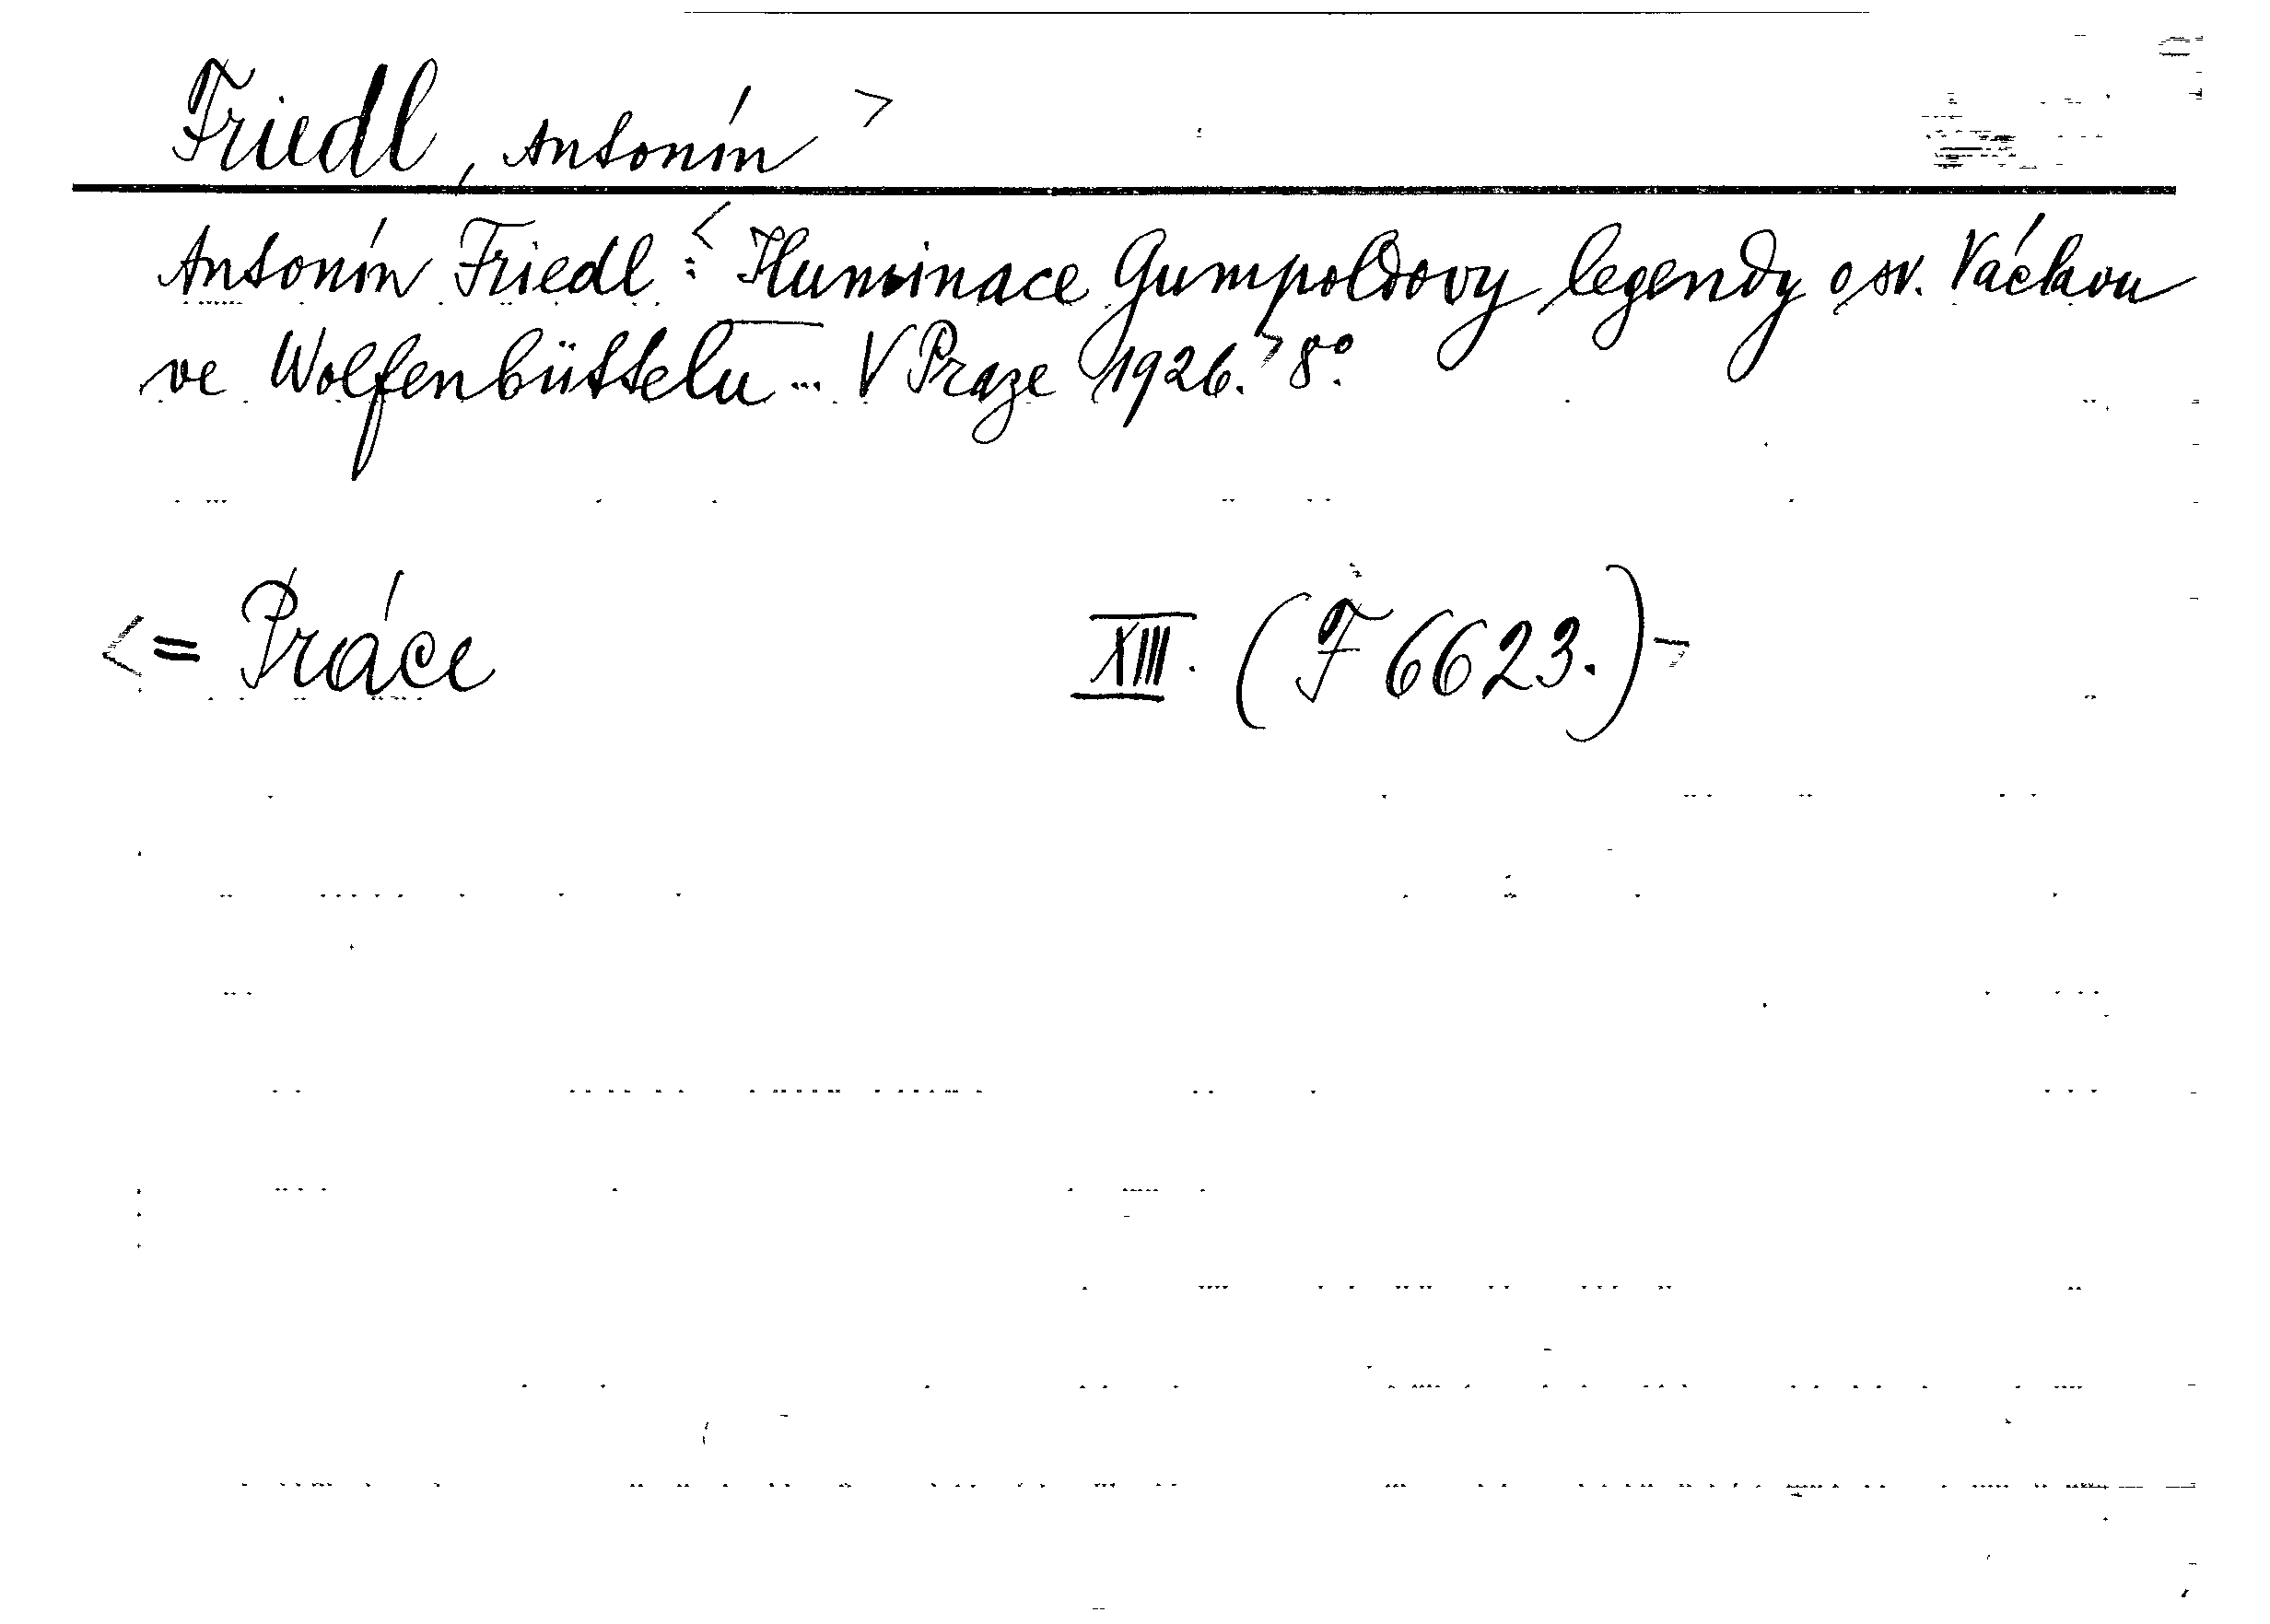 Friedl, Antonín >
Antonín Friedl : < Iluminace Gumpoldovy legendy o sv. Václavu
ve Wolfenbüttelu ... V Praze 1926. > 8°.
< = Práce XIII. (F 6623.) >